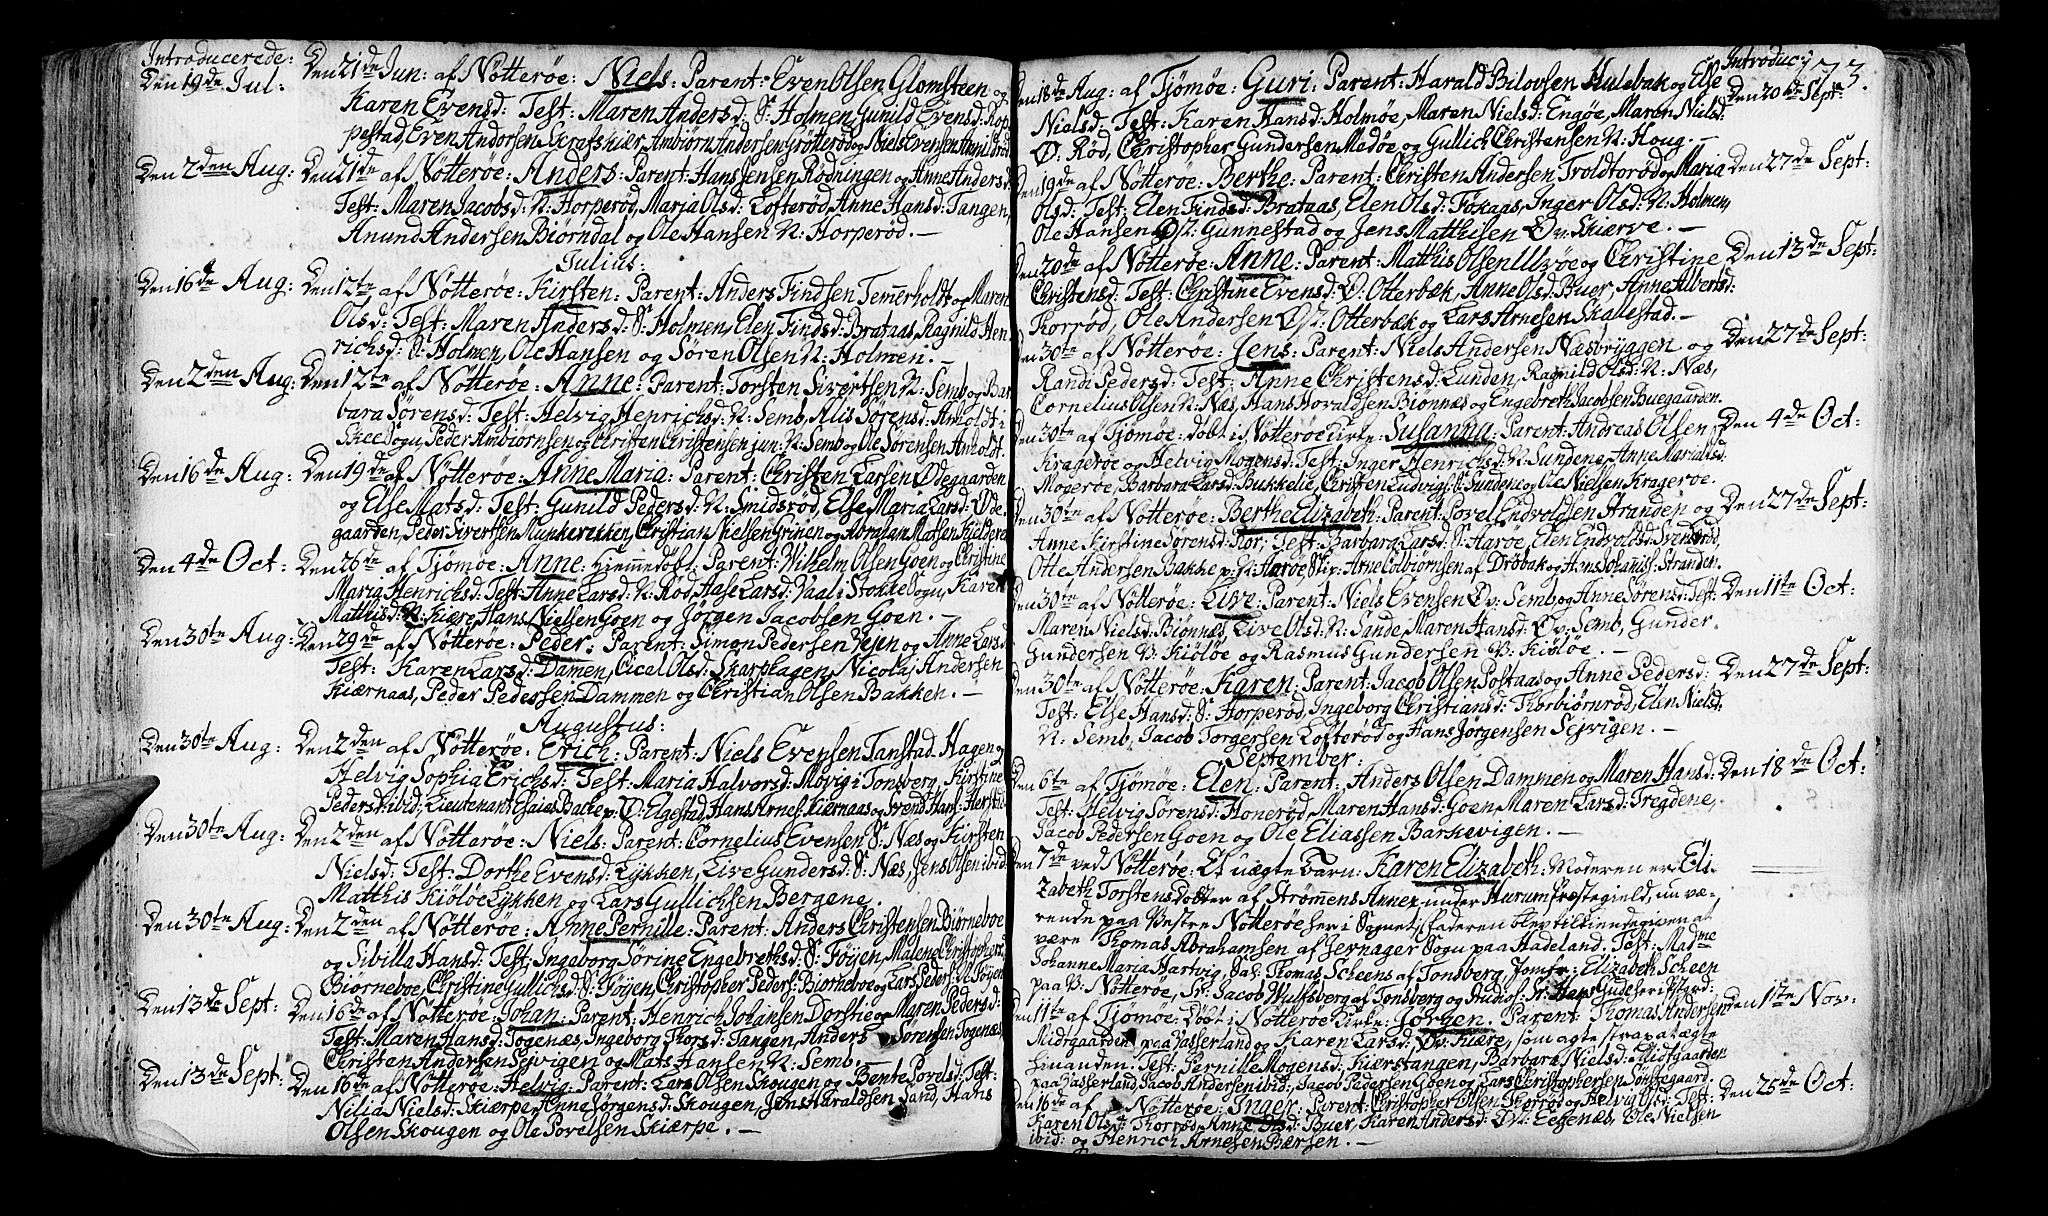 Introducerede:
Den 19de Jul: Den 21de Jun: af Nötterøe: Niels: Parent: Even Olsen Glomsteen og
Karen Evensd: Test: Maren Andersd: S: Holmen, Gunild Evensd: Rop-
pestad, Even Andersen Skrafskiær, Ambiörn Andersen Grötteröd og Niels Evensen
Den 2den Aug: Den 21de af Nötterøe: Anders: Parent: Hans Jensen Rödningen og Anne Andersd:
Test: Maren Jacobsd: N: Horperöd, Maria Olsd: Lofteröd, Anne Hansd: Tangen,
Anund Andersen Biörndal og Ole Hansen N: Horperöd. —
Julius:
Den 16de Aug: Den 12te af Nötterøe: Kirsten: Parent: Anders Findsen Temmerholdt og Maren
Olsd: Test: Maren Andersd: S: Holmen, Elen Findsd: Brataas, Ragnild Hen-
richsd: S: Holmen, Ole Hansen og Sören Olsen N: Holmen. —
Den 2den Aug: Den 12te af Nötterøe: Anne: Parent: Torsten Sivertsen N: Semb og Bar-
bara Sörensd: Test: Helvig Henrichsd: N: Semb, Alis Sörensd: Arholdt i
Skeedsogn, Peder Ambiörnsen og Christen Christensen jun: N: Semb og Ole Sörensen Arholdt.
Den 16de Aug: Den 19de af Nötterøe: Anne Maria: Parent: Christen Larsen Ødegaarden
og Else Matsd: Test: Gunild Pedersd: N: Smidsröd, Else Maria Larsd: Øde-
gaarden, Peder Sivertsen Munkerekken, Christian Nielsen Grinen og Abraham Matsen Kieldberg
Den 4de Oct: Den 26de af Tjömøe: Anne: Hjemmedöbt: Parent: Wilhelm Olsen Goen og Christine
Maria Henrichsd: Test: Anne Larsd: N: Röd, Hase Larsd: Vaal i Stokke Sogn, Karen
Matthisd: N: Kiære, Hans Nielsen Goen og Jörgen Jacobsen Goen. —
Den 30te Aug: Den 29de af Nötterøe: Peder: Parent: Simon Pedersen Vejen og Anne Larsd:
Test: Karen Larsd: Damen, Cical Olsd: Skarphagen, Nicolaj Andersen
Kiærnaas, Peder Pedersen Dammen og Christian Olsen Bakken. —
Augustus:
Den 30te Aug: Den 2den af Nötterøe: Erich: Parent: Niels Evensen Tanstad Hagen og
Helvig Sophia Erichsd: Test: Maria Halvorsd: Movig i Tonsberg, Kirstine
Pedersd: ibid, Lieutenant Esaias Backe p: Ø: Elgestad, Hans Arnes: Kiærnaas og Svend Hans:
Den 30te Aug: Den 2den af Nötterøe: Niels: Parent: Cornelius Evensen S: Næs og Kirsten
Nielsd: Test: Dorthe Evensd: Lykken, Live Gundersd: S: Næs, Jens Olsen ibid:
Matthis Kiölöe Lykken og Lars Gullichsen Bergene.
Den 30te Aug: Den 2den af Nötterøe: Anne Pernille: Parent: Anders Christensen Biörneboe
og Sibilla Hansd: Test: Ingeborg Sörine Engebrethsd: S: Föyen, Malene Christophersd:
Biörneboe, Christine Gullichsd: S: Föyen, Christopher Peders: Biorneboe og Lars Peders: N: Föyen
Den 13de Sept: Den 16de af Nötterøe: Johan: Parent: Henrich Johansen Dorstie og Maren Pedersd:
Test: Maren Hansd: Togenæs, Ingeborg Thorsd: Tangen, Anders Sörensen Togenæs,
Christen Andersen Sejvigen og Mats Hansen N: Semb.
Den 13de Sept: Den 16de af Nötterøe: Helvig: Parent: Lars Olsen Skougen og Bente Povelsd: Test:
Nilia Nielsd: Skiærpe, Anne Jörgensd: Skougen, Jens Haraldsen Sand, Hans
Olsen Skougen og Ole Povelsen Skiærpe. —
Introduc: 173.
Den 18de Aug: af Tjömøe: Guri: Parent: Harald Bilovsen Hulebak og Else Den 20de Sept:
Nielsd: Test: Karen Hansd: Holmøe, Maren Nielsd: Engøe, Maren Nielsd:
Ø: Röd, Christopher Gundersen Medøe og Gullich Christensen N: Houg. —
Den 19de af Nötterøe: Berthe: Parent: Christen Andersen Troldtoröd og Maria Den 27de Sept:
Olsd: Test: Elen Findsd: Brataas, Elen Olsd: Fokaas, Inger Olsd: N: Holmen,
Ole Hansen Øv: Gunnestad og Jens Matthisen Øv: Skiærve. —
Den 20de af Nötterøe: Anne: Parent: Matthis Olsen Ulvøe og Christine Den 13de Sept:
Christensd: Test: Christine Evensd: Ø: Otterbæk, Anne Olsd: Buer, Anne Albertsd:
Torröd, Ole Andersen Øv: Otterbæk og Lars Arnesen Skallestad. —
Den 30te af Nötterøe: Jens: Parent: Niels Andersen Næsbryggen og Den 27de Sept:
Randi Pedersd: Test: Anne Christensd: Lunden, Ragnild Olsd: N: Næs,
Cornelius Olsen N: Næs, Hans Hovaldsen Bionnæs og Engebreth Jacobsen Buegaarden.
Den 30te af Tjömøe: döbt i Nötterøe Kirke: Susanna: Parent: Andreas Olsen Den 4de Oct:
Kragerøe og Helvig Mogensd: Test: Inger Henrichsd: N: Sundene, Anne Maria
Mogerøe, Barbara Larsd: Bukkelie, Christen Ludvigs: S: Sundene og Ole Nielsen Kragerøe.
Den 30te af Nötterøe: Berthe Elizabeth: Parent: Povel Endvoldsen Stranden og Den 27de Sept:
Anne Kirstine Sörensd: Test: Barbara Larsd: S: Aarøe, Elen Endvoldsd: Svenseröd,
Otte Andersen Bakke p: N: Aarøe, Arne Colbiörnsen af Dröbak og Hans Johanis: Stranden.
Den 30te af Nötterøe: Live: Parent: Niels Evensen Øv: Semb, og Anne Sörensd: Test: Den 11te Oct:
Maren Nielsd: Bionnæs, Live Olsd: N: Sande, Maren Hansd: Øv: Semb, Gunder
Gundersen V: Kiöløe og Rasmus Gundersen V: Kiöløe. —
Den 30te af Nötterøe: Karen: Parent: Jacob Olsen Postaas og Anne Pedersd: Den 27de Sept:
Test: Else Hansd: S: Horperöd, Ingeborg Christiansd: Thorbiörnröd, Elen Nielsd:
N: Semb, Jacob Torgersen Lofteröd og Hans Jörgensen Sejvigen. —
September:
Den 6te af Tjömøe: Elen: Parent: Anders Olsen Dammen og Maren Hansd: Den 18de Oct:
Test: Helvig Sörensd: Honeröd, Maren Hansd: Goen, Maren Larsd: Tregdene,
Jacob Pedersen Goen og Ole Eliassen Barkevigen. —
Den 7de ved Nötterøe: Et uægte Barn: Karen Elizabeth: Moderen er Eli-
zabeth Torstensdotter af Strömmens Annex under Hurum Præstegield, nu væ-
rende paa Vestre Nötterøe her i Sognet, Faderen blev tilkiendegiven at
være Thomas Abrahamsen af Jernager Sogn paa Hadeland. Test: Madme
Johanne Maria Hartvig, Sal: Thomas Scheens af Tonsberg, Jomfr: Elizabeth Scheen
paa V: Nötterøe, Sr: Jacob Wulfsberg af Tonsberg og Studios: Sr: Hans
Den 11te af Tjömøe: Döbt i Nötterøe Kirke: Jörgen. Parent: Thomas Andersen Den 1ste Nov:
Midtgaarden paa Jasserland og Karen Larsd: Øv: Kiære, som ægte
Test: Pernille Mogensd: Kierstangen, Barbara Nielsd: Midtgaarden
paa Jasserland, Jacob Andersen ibid: Jacob Pedersen Goen og Lars Christophersen Sönstegaard.
Den 16de af Nötterøe: Inger: Parent: Christopher Olsen Torröd og Helvig Olsd: Test: Den 25de Oct:
Karen Olsd: Torröd, Anne Olsd: Buer, Karen Andersd: Øv: Eegenæs, Ole Nielsen
ibid: og Henrich Arnesen Bærsen. —